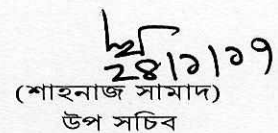 ২৪।১।১৭
(শাহনাজ সামাদ)
উপ সচিব